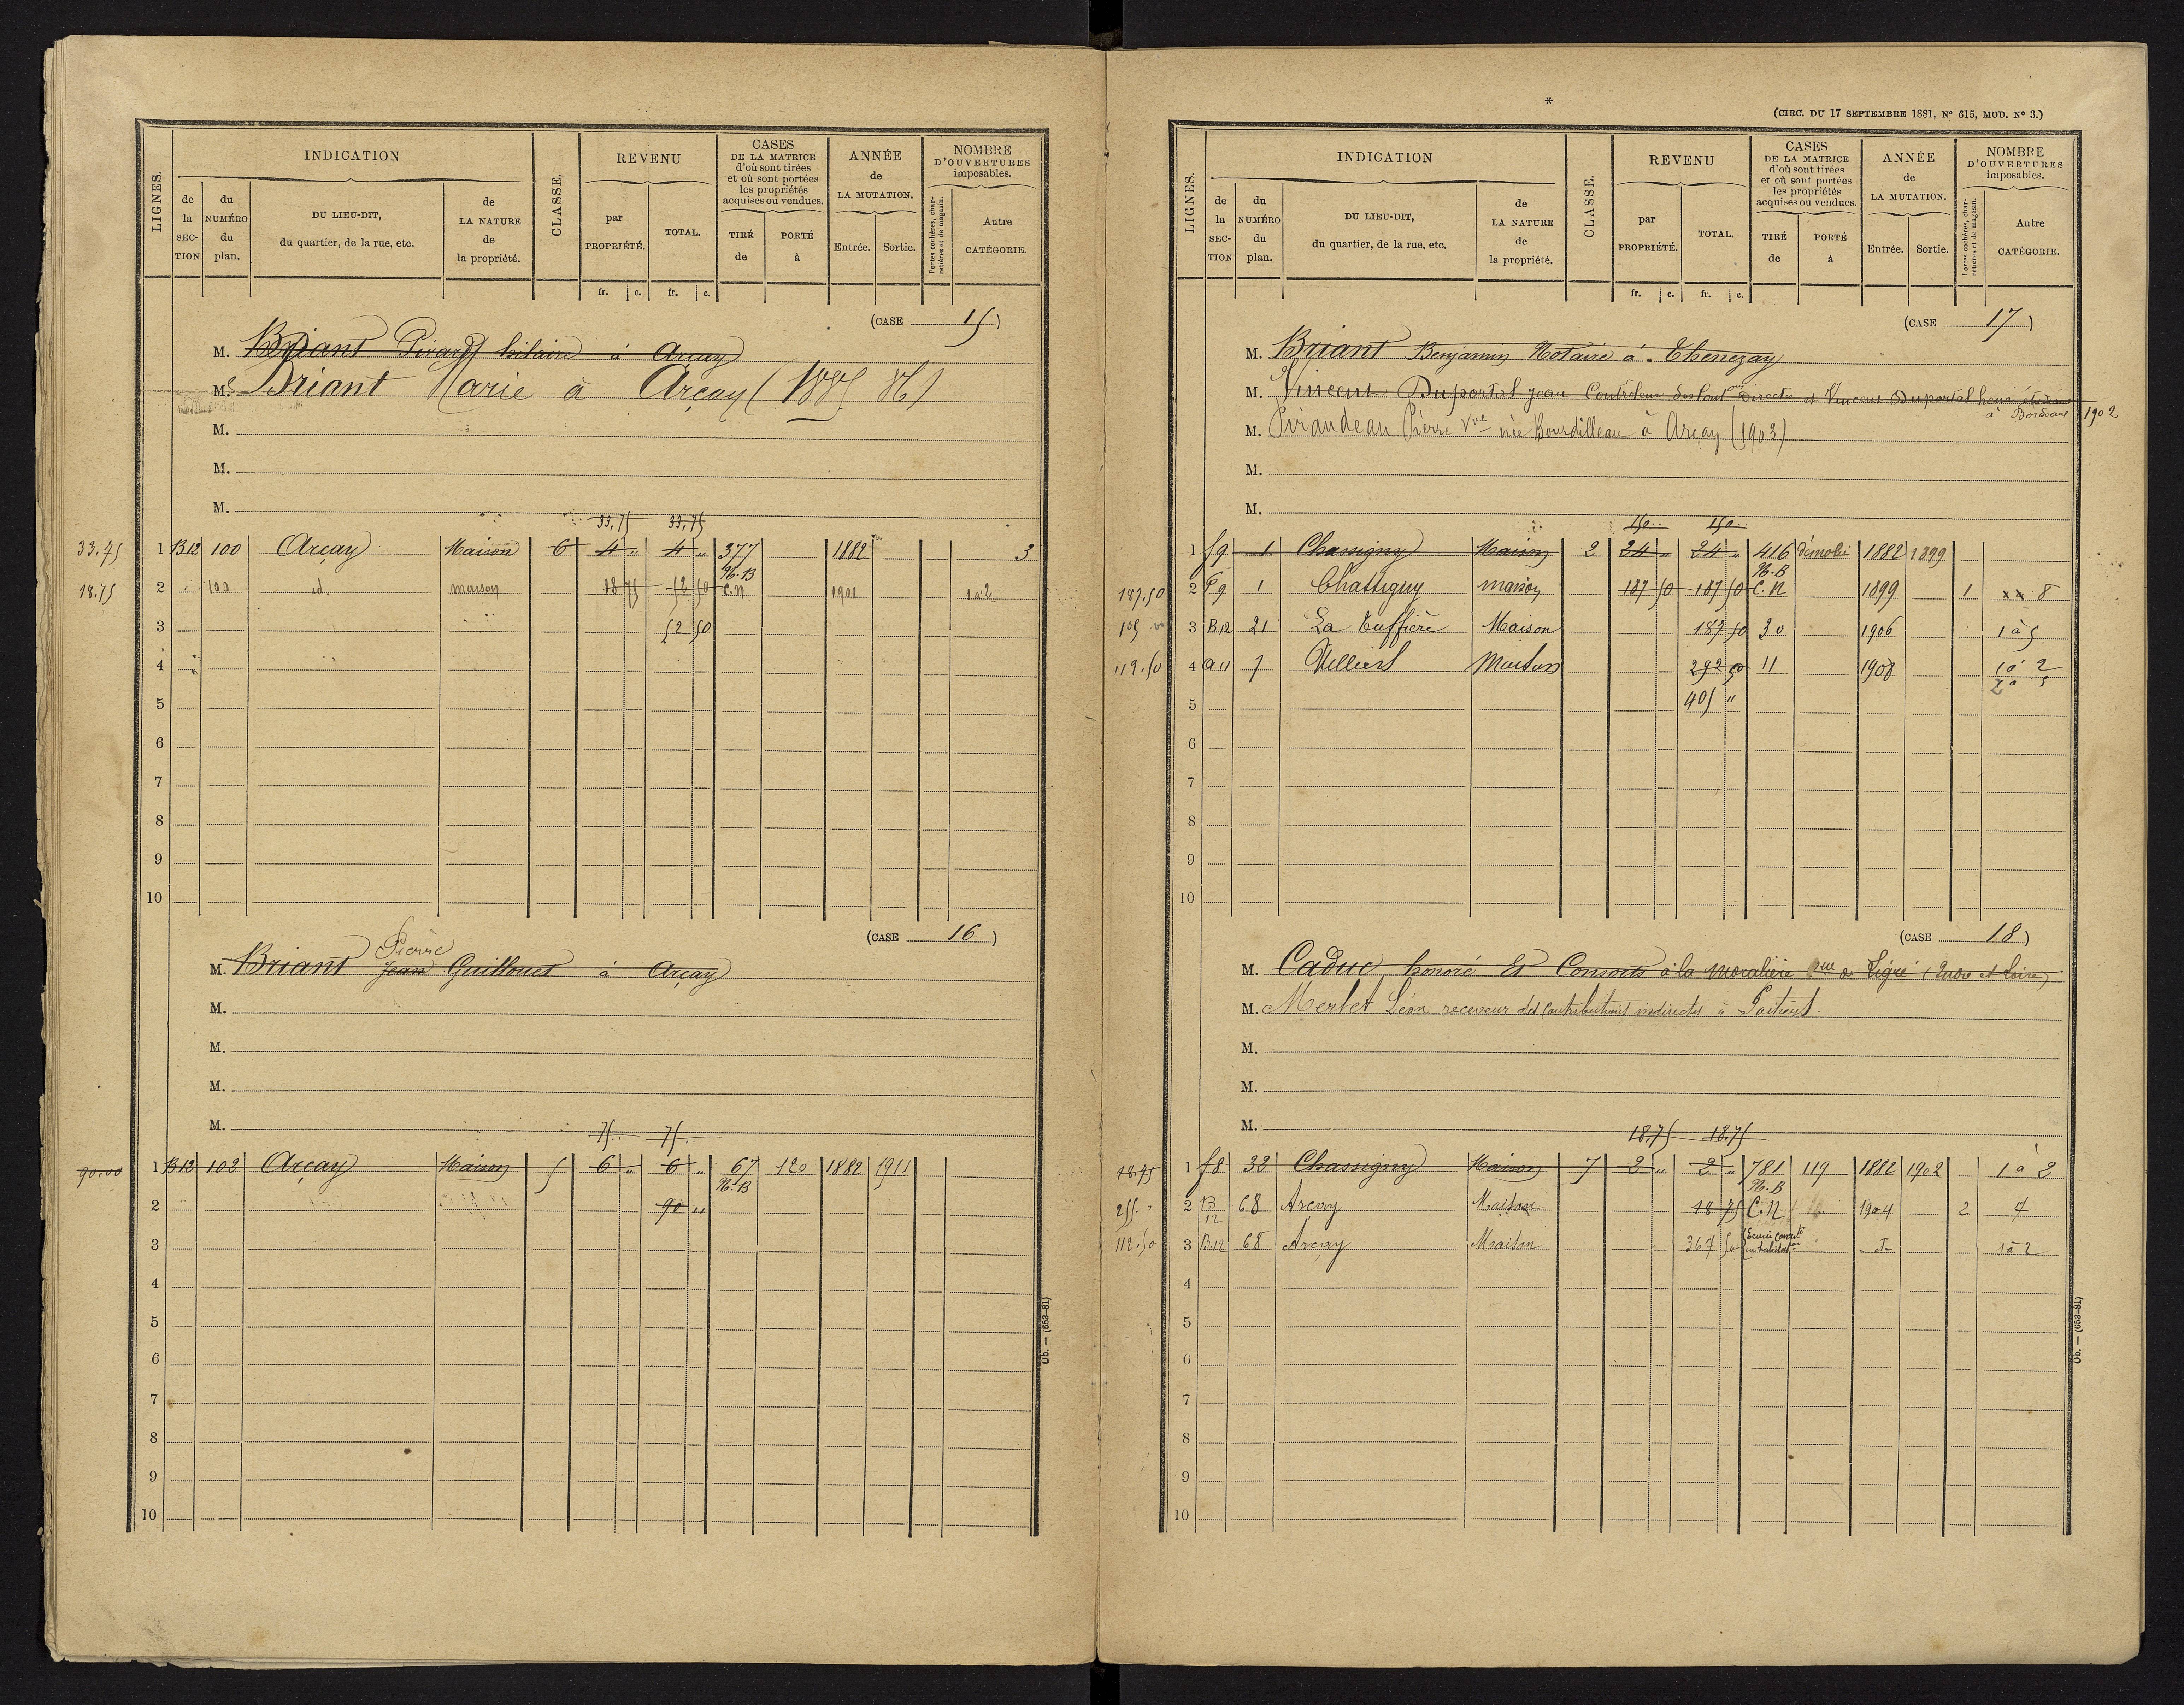 LIGNES. INDICATION CLASSE. REVENU CASES DE LA MATRICE d'où sont tirées et où sont portées les propriétés acquises ou vendues. ANNÉE de LA MUTATION. NOMBRE D'OUVERTURES imposables.
de la SECTION du NUMÉRO du plan. DU LIEU-DIT, du quartier, de la rue, etc. de LA NATURE de la propriété. par PROPRIÉTÉ. TOTAL. TIRÉ de PORTÉ à Entrée. Sortie. Portes cochères, charretières et de magasin. Autre CATÉGORIE.
fr. c. fr. c.
(CASE 15)
M. Briant Girard hilaire à Arçay
M. Briant Marie à Arçay (1885 86)
M.
M.
M.
33,75 33,75
33.75 1 B12 100 Arçay Maison 6 4 " 4 " 377 1882 3
N.B
18.75 2 100 id. maison 18 75 52 50 C.N 1901 1 à 2
3 52 50
4
5
6
7
8
9
10
(CASE 16)
Pierre
M. Briant Jean Guillouet à Arçay
M.
M.
M.
M.
75 75
90.00 1 B12 102 Arçay Maison 5 6 " 6 " 67 120 1882 1911
N.B
2 90 "
3
4
5
6
7
8
9
10
Ob. — (653-81)
*
(CIRC. DU 17 SEPTEMBRE 1881, N° 615, MOD. N° 3.)
LIGNES. INDICATION CLASSE. REVENU CASES DE LA MATRICE d'où sont tirées et où sont portées les propriétés acquises ou vendues. ANNÉE de LA MUTATION. NOMBRE D'OUVERTURES imposables.
de la SECTION du NUMÉRO du plan. DU LIEU-DIT, du quartier, de la rue, etc. de LA NATURE de la propriété. par PROPRIÉTÉ. TOTAL. TIRÉ de PORTÉ à Entrée. Sortie. Portes cochères, charretières et de magasin. Autre CATÉGORIE.
fr. c. fr. c.
(CASE 17)
M. Briant Benjamin Notaire à Thenezay
M. Vincent Duportal jean Controleur des Cont ons Directes et Vincent Duportal henri étudiant
à Bordeaux 1902
M. Piraudeau Pierre Vve née Bourdilleau à Arçay (1903)
M.
M.
150 150
1 f9 1 Chassigny Maison 2 24 " 24 " 416 démolie 1882 1899
N.B
187.50 2 f9 1 Chassigny maison 187 50 187 50 C.N 1899 1 8
105 3 B12 21 La Tuffière Maison 187 50 30 1906 1 à 5
112.50 4 a11 7 Villiers Maison 292 50 11 1908 1 à 2
2 à 5
5 405 "
6
7
8
9
10
(CASE 18)
M. Caduc honoré Et Consorts à la moralière cne de Ligré (Indre et Loire)
M. Merlet Léon receveur des Contributions indirectes à Poitiers.
M.
M.
M.
18.75 18.75
18.75 1 f8 32 Chassigny Maison 7 2 " 2 " 781 119 1882 1902 1 à 2
N.B
255 2 B12 68 Arçay Maison 18 75 C.N 1904 2 4
112.50 3 B12 68 Arçay Maison 367 50 Ecurie convert 1 à 2
4
5
6
7
8
9
10
Ob. — (653-81)